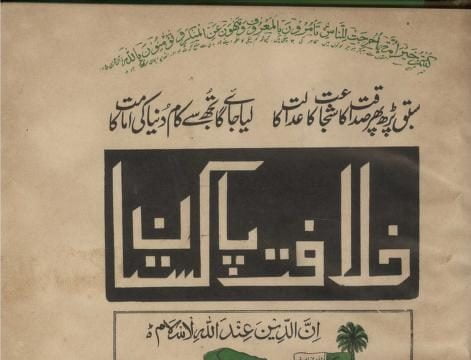 كُنْتُمْ خَيْرَ اُمَّةٍ اُخْرِجَتْ لِلنَّاسِ تَأْمُرُوْنَ بِالْمَعْرُوْفِ وَتَنْهَوْنَ عَنِ الْمُنْكَرِ وَتُؤْمِنُوْنَ بِاللّٰهِ
سبق پڑھ پھر صداقت کا شجاعت کا عدالت کا لیا جائے گا تُجھ سے کام دُنیا کی امامت کا
خلافت پاکستان
اِنَّ الدِّيْنَ عِنْدَ اللّٰهِ الْاِسْلَام